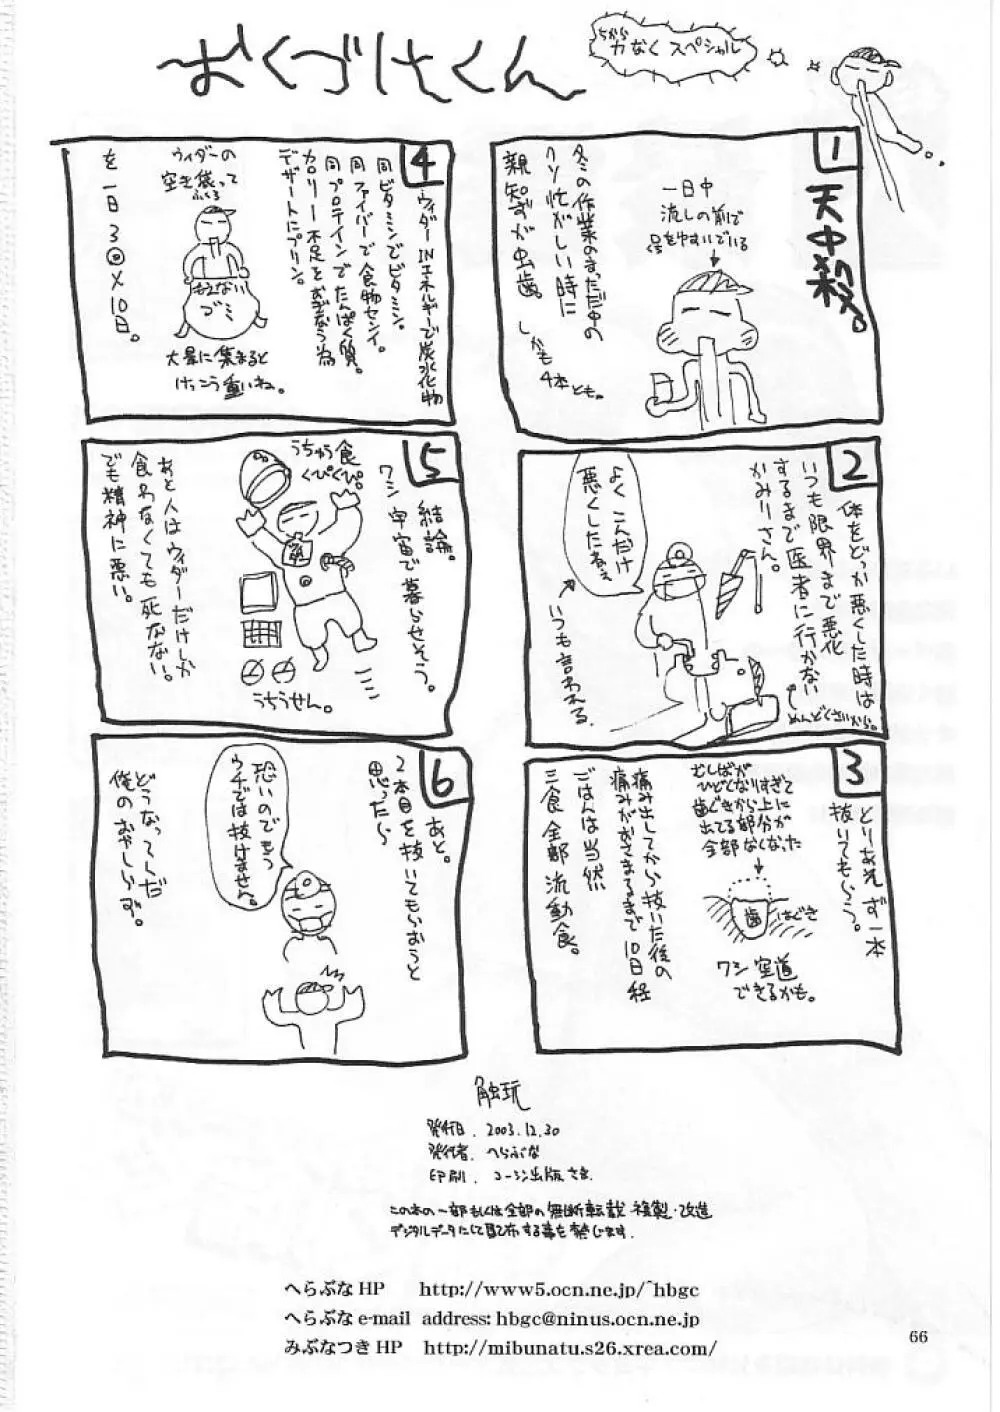 おくづけくん
ちから
力なくスペシャル
1
天中殺。
冬の作業のまっただ中の
クソ忙がしい時に
親知ずが虫歯。
しかも
4本とも。
一日中
流しの前で
2
体をどっか悪くした時は
いつも限界まで悪化
するまで医者に行かない
かみりさん。
めんどくさいから。
よくこんだけ
悪くしたねぇ
いつも言われる。
3
とりあえず一本
抜いてもらう。
むしばが
ひどくなりすぎて
歯ぐきから上に
出てる部分が
全部なくなった
歯
はぐき
ワシ空道
できるかも。
痛み出してから抜いた後の
痛みがおさまるまで10日程
ごはんは当然
三食全部流動食。
4
ウィダーINエネルギーで炭水化物
同ビタミンでビタミン。
同ファイバーで食物センイ。
同プロテインでたんぱく質。
カロリー不足をおぎなう為
デザートにプリン。
を一日3回×10日。
ウィダーの
空き袋って
ふくろ
もえない
ゴミ
大量に集まると
けっこう重いね。
5
結論。
ワシ宇宙で暮らせそう。
うちゅう食
くぴくぴ。
ここ
うちうせん。
あと人はウィダーだけしか
食わなくても死なない。
でも精神に悪い。
6
あと。
2本目を抜いてもらおうと
思ったら
恐いのでもう
ウチでは抜けません。
どうなってんだ
俺のおやしらず。
触玩
発行日. 2003.12.30
発行者. へらぶな
印刷. コーシン出版さま
この本の一部もしくは全部の無断転載・複製・改造
デジタルデータにして配布する事を禁じます.
へらぶなHP http://www5.ocn.ne.jp/~hbgc
へらぶなe-mail address: hbgc@ninus.ocn.ne.jp
みぶなつきHP http://mibunatu.s26.xrea.com/
66